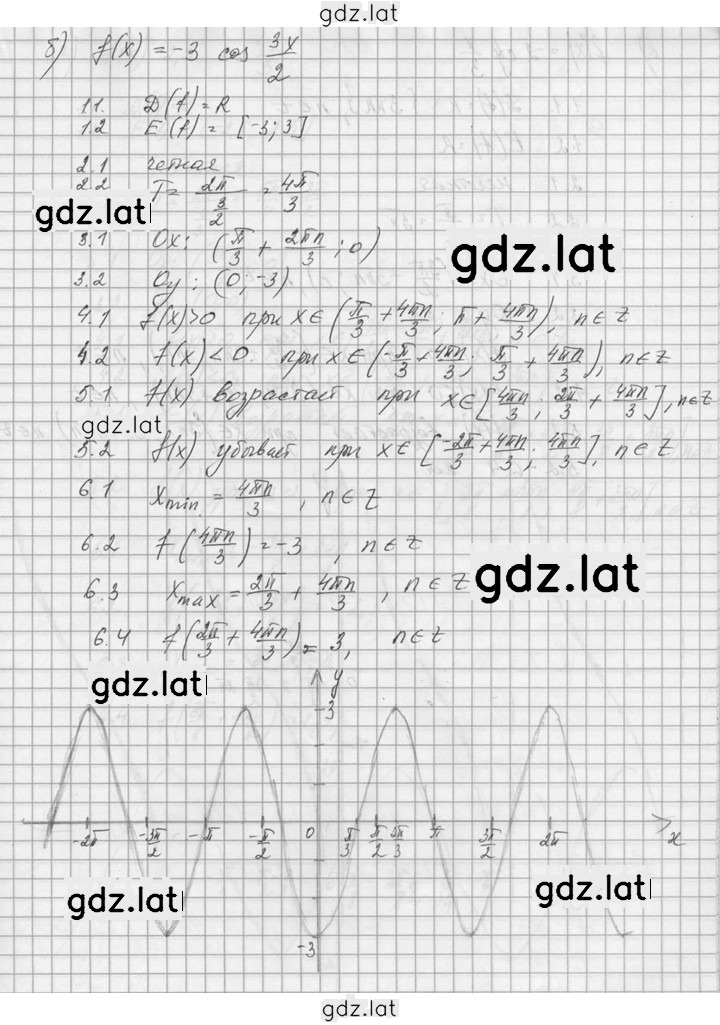 gdz.lat
б) f(x) = -3 cos 3x/2
1.1. D(f) = R
1.2 E(f) = [-3; 3]
2.1 четная
2.2 T = 2π/(3/2) = 4π/3
gdz.lat
3.1 Ox: (π/3 + 2πn/3; 0)
gdz.lat
3.2 Oy: (0; -3)
4.1 f(x)>0 при x∈(π/3 + 4πn/3; π + 4πn/3), n∈Z
4.2 f(x)<0 при x∈(-π/3 + 4πn/3; π/3 + 4πn/3), n∈Z
5.1 f(x) возрастает при x∈[4πn/3; 2π/3 + 4πn/3], n∈Z
gdz.lat
5.2 f(x) убывает при x∈[-2π/3 + 4πn/3; 4πn/3], n∈Z
6.1 xmin = 4πn/3, n∈Z
6.2 f(4πn/3) = -3, n∈Z
gdz.lat
6.3 xmax = 2π/3 + 4πn/3, n∈Z
6.4 f(2π/3 + 4πn/3) = 3, n∈Z
gdz.lat
y
3
-2π -3π/2 -π -π/2 0 π/3 π/2 2π/3 π 3π/2 2π x
gdz.lat
gdz.lat
-3
gdz.lat